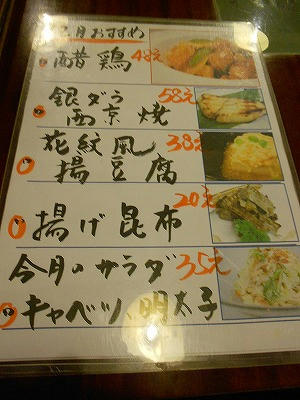 月おすすめ
醋鶏 48元
銀ダラ 58元
西京焼
花紋風 38元
揚豆腐
揚げ昆布 20元
今月のサラダ 35元
キャベツ、明太子